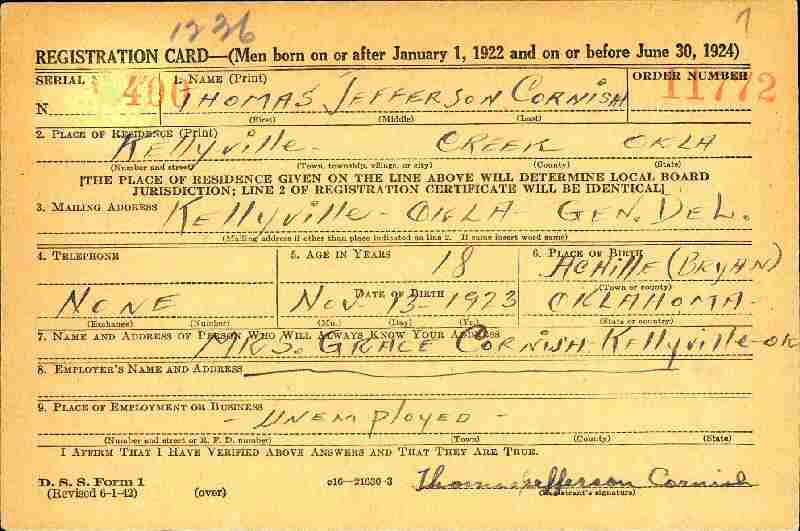 1226 7
REGISTRATION CARD—(Men born on or after January 1, 1922 and on or before June 30, 1924)
SERIAL 1. NAME (Print) ORDER NUMBER
N 400 THOMAS JEFFERSON CORNISH 11772
(First) (Middle) (Last)
2. PLACE OF RESIDENCE (Print)
Kellyville- CREEK OKLA
(Number and street) (Town, township, village, or city) (County) (State)
[THE PLACE OF RESIDENCE GIVEN ON THE LINE ABOVE WILL DETERMINE LOCAL BOARD
JURISDICTION; LINE 2 OF REGISTRATION CERTIFICATE WILL BE IDENTICAL]
3. MAILING ADDRESS Kellyville- OKLA GEN. DEL.
(Mailing address if other than place indicated on line 2. If same insert word same)
4. TELEPHONE 5. AGE IN YEARS 6. PLACE OF BIRTH
18 ACHILLE (BRYAN)
DATE OF BIRTH (Town or county)
NONE NOV-13-1923 OKLAHOMA-
(Exchange) (Number) (Mo.) (Day) (Yr.) (State or country)
7. NAME AND ADDRESS OF PERSON WHO WILL ALWAYS KNOW YOUR ADDRESS
MRS. GRACE CORNISH-Kellyville-OK
8. EMPLOYER'S NAME AND ADDRESS
9. PLACE OF EMPLOYMENT OR BUSINESS
- UNEMPLOYED -
(Number and street or R. F. D. number) (Town) (County) (State)
I AFFIRM THAT I HAVE VERIFIED ABOVE ANSWERS AND THAT THEY ARE TRUE.
D. S. S. Form 1 c16—21630-3 Thomas Jefferson Cornish
(Revised 6-1-42) (over) (Registrant's signature)